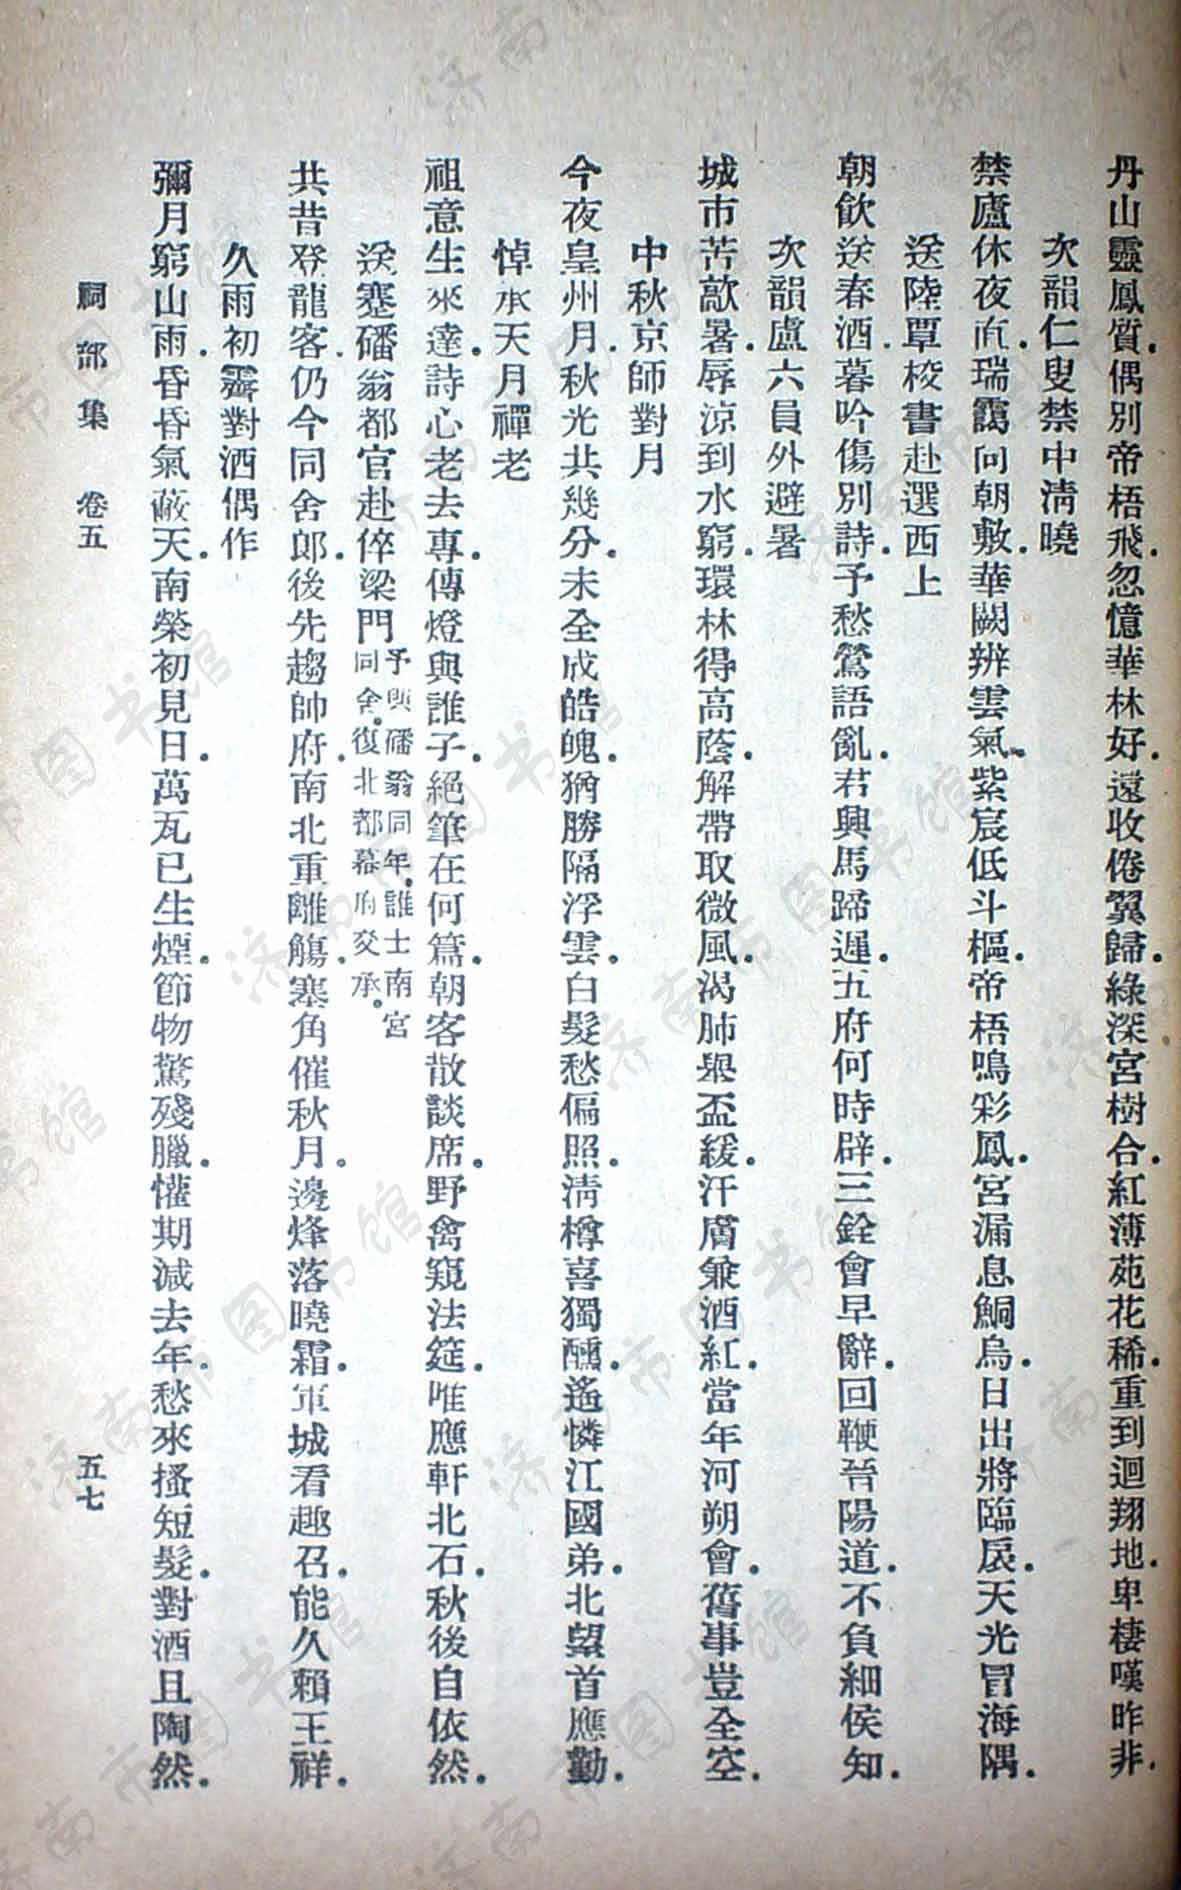 丹山靈鳳質.偶別帝梧飛.忽憶華林好.遠收倦翼歸.綠深宮樹合.紅薄苑花稀.重到迴翔地.卑棲嘆昨非.
次韻仁叟禁中清曉
禁廬休夜直.瑞靄向朝敷.華闕辨雲氣.紫宸低斗樞.帝梧鳴彩鳳.宮漏息鯛烏.日出將臨扆.天光冒海隅.
送陸覃校書赴選西上
朝飲送春酒.暮吟傷別詩.予愁鶯語亂.君興馬蹄遲.五府何時辟.三銓會早辭.回鞭晉陽道.不負細侯知.
次韻盧六員外避暑
城市苦歊暑.辱涼到水窮.環林得高蔭.解帶取微風.渴肺舉盃緩.汗膚兼酒紅.當年河朔會.舊事豈全空.
中秋京師對月
今夜皇州月.秋光共幾分.未全成皓魄.猶勝隔浮雲.白髮愁偏照.清樽喜獨醺.遙憐江國弟.北望首應勤.
悼承天月禪老
祖意生來達.詩心老去專.傳燈與誰子.絕筆在何篇.朝客散談席.野禽窺法筵.唯應軒北石.秋後自依然.
送蹇磻翁都官赴倅梁門予與磻翁同年.誰士南宮同舍.復北都幕府交承.
共昔登龍客.仍今同舍郎.後先趨帥府.南北重離觴.塞角催秋月.邊烽落曉霜.軍城看趣召.能久賴王祥.
久雨初霽對酒偶作
彌月窮山雨.昏昏氣蔽天.南榮初見日.萬瓦已生煙.節物驚殘臘.懽期減去年.愁來搔短髮.對酒且陶然.
祠部集 卷五
五七
濟南市图书馆